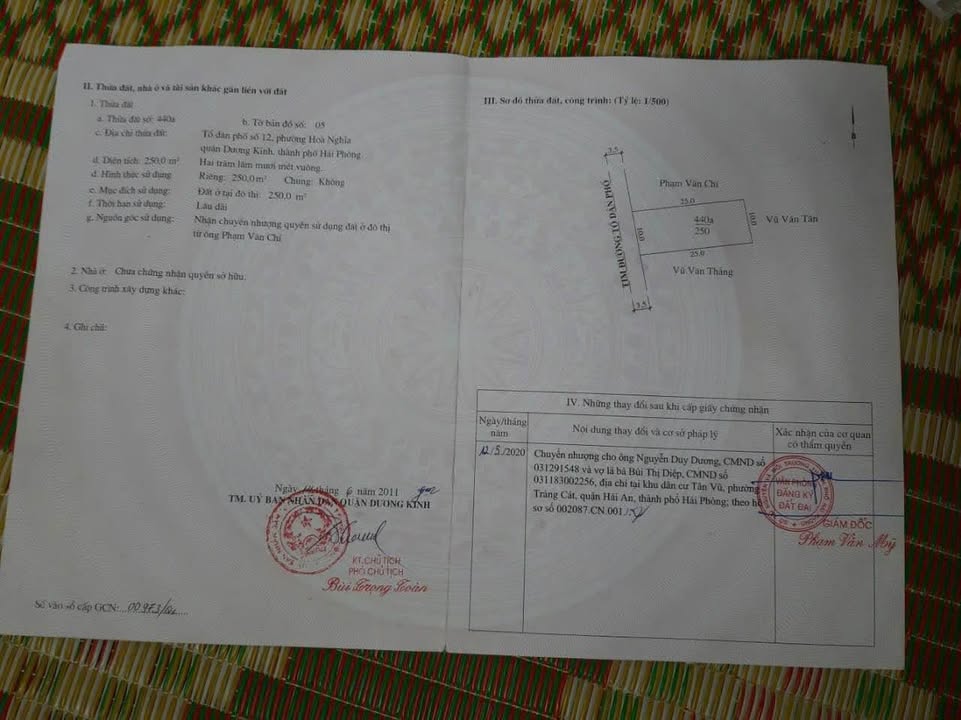 II. Thửa đất, nhà ở và tài sản khác gắn liền với đất
1. Thửa đất
a. Thửa đất số: 440a b. Tờ bản đồ số: 05
c. Địa chỉ thửa đất: Tổ dân phố số 12, phường Hoà Nghĩa
quận Dương Kinh, thành phố Hải Phòng
d. Diện tích: 250,0 m² Hai trăm lăm mươi mét vuông.
d. Hình thức sử dụng Riêng: 250,0 m² Chung: Không
e. Mục đích sử dụng: Đất ở tại đô thị: 250,0 m²
f. Thời hạn sử dụng: Lâu dài
g. Nguồn gốc sử dụng: Nhận chuyển nhượng quyền sử dụng đất ở đô thị
từ ông Phạm Văn Chỉ
2. Nhà ở: Chưa chứng nhận quyền sở hữu.
3. Công trình xây dựng khác:
4. Ghi chú:
Ngày tháng 6 năm 2011
TM. UỶ BAN NHÂN DÂN QUẬN DƯƠNG KINH
KT.CHỦ TỊCH
PHÓ CHỦ TỊCH
Bùi Trọng Toàn
Số vào sổ cấp GCN:
III. Sơ đồ thửa đất, công trình: (Tỷ lệ: 1/500)
B
3,5
TIM ĐƯỜNG TỔ DÂN PHỐ
Phạm Văn Chỉ
25.0
440a
250
10,0
10,0
Vũ Văn Tân
25.0
Vũ Văn Thăng
3,5
IV. Những thay đổi sau khi cấp giấy chứng nhận
Ngày/tháng
năm
Nội dung thay đổi và cơ sở pháp lý
Xác nhận của cơ quan
có thẩm quyền
12/5/2020
Chuyển nhượng cho ông Nguyễn Duy Dương, CMND số
031291548 và vợ là bà Bùi Thị Diệp, CMND số
031183002256, địa chỉ tại khu dân cư Tân Vũ, phường
Tràng Cát, quận Hải An, thành phố Hải Phòng; theo hồ
sơ số 002087.CN.001
VĂN PHÒNG
ĐĂNG KÝ
ĐẤT ĐAI
GIÁM ĐỐC
Phạm Văn Mỹ